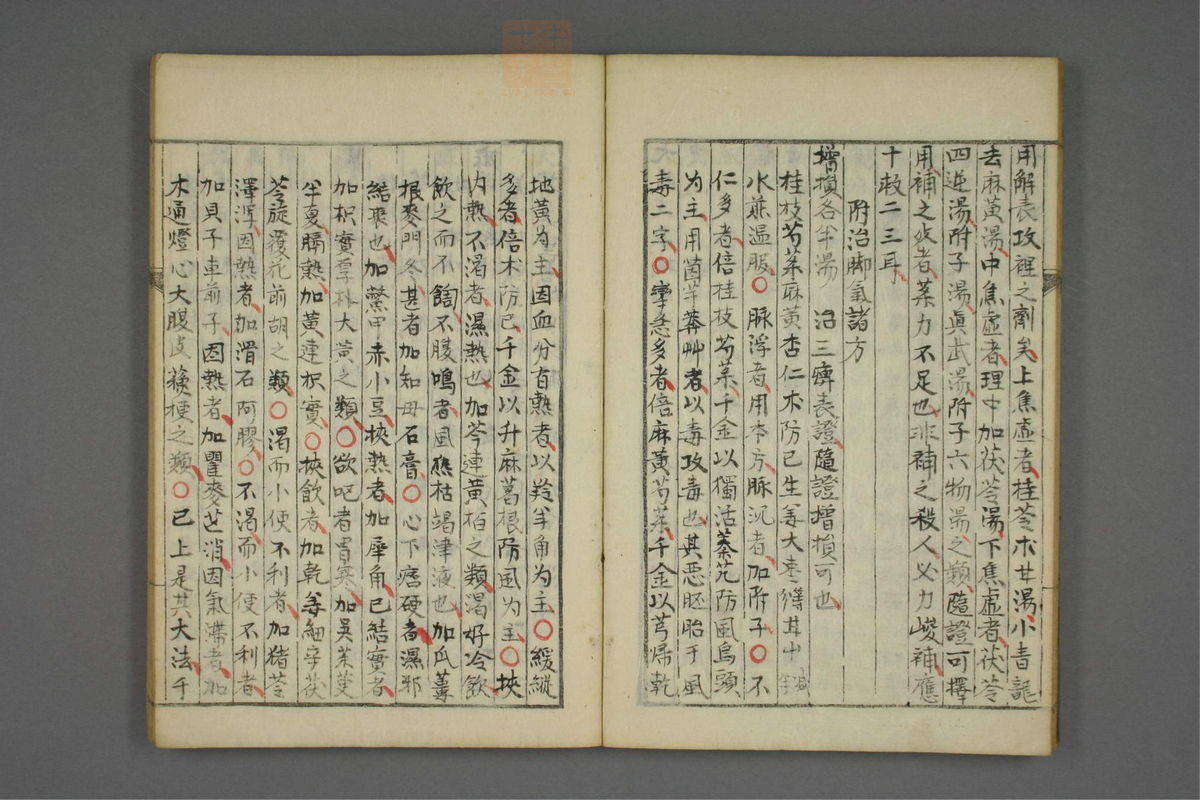 用解表攻裡之劑矣上焦虛者桂苓朮甘湯小青龍
去麻黃湯中焦虛者理中加茯苓湯下焦虛者茯苓
四逆湯附子湯眞武湯附子六物湯之類隨證可擇
用補之攻者藥力不足也非補之殺人必力峻補應
十救二三耳
附治脚氣諸方
增損各半湯 治三痺表證隨證增損可也
桂枝芍藥麻黃杏仁朮防已生姜大棗 甘艸
水煎溫服〇脉浮者用本方脉沉者加附子〇不
仁多者倍桂枝芍藥千金以獨活蓁艽防風烏頭
为主用茵芋莽艸者以毒攻毒也其惡胚胎于風
毒二字〇攣急多者倍麻黃芍藥千金以芎歸乾
地黃为主因血分有熱者以羚羊角为主〇緩縱
多者倍朮防已千金以升麻葛根防風为主〇挾
内熱不渴者濕熱也加芩連黃栢之類渴好冷飲
飲之而不 不腹鳴者風 枯竭津液也加瓜蔞
根麥門冬甚者加知母石膏〇心下痞硬者濕邪
結聚也加鱉甲赤小豆挾熱者加犀角已結實者
加枳實厚朴大黃之類〇欲吐者胃寒加吳茱萸
半夏膈熱加黃連枳實〇挾飲者加乾姜細辛茯
苓旋覆花前胡之類〇渴而小便不利者加猪苓
澤瀉因熱者加滑石阿膠〇不渴而小便不利者
加貝子車前子因熱者加瞿麥芒消因氣滯者加
木通燈心大腹皮蘓梗之類〇已上是其大法千